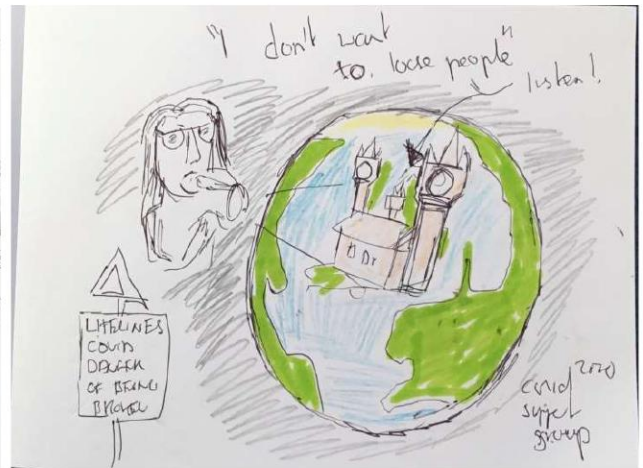 "I don't want
to loose people"
listen!
LIFELINES
COVID
DANGER
OF BEING
BROKEN
covid 2020
support
group